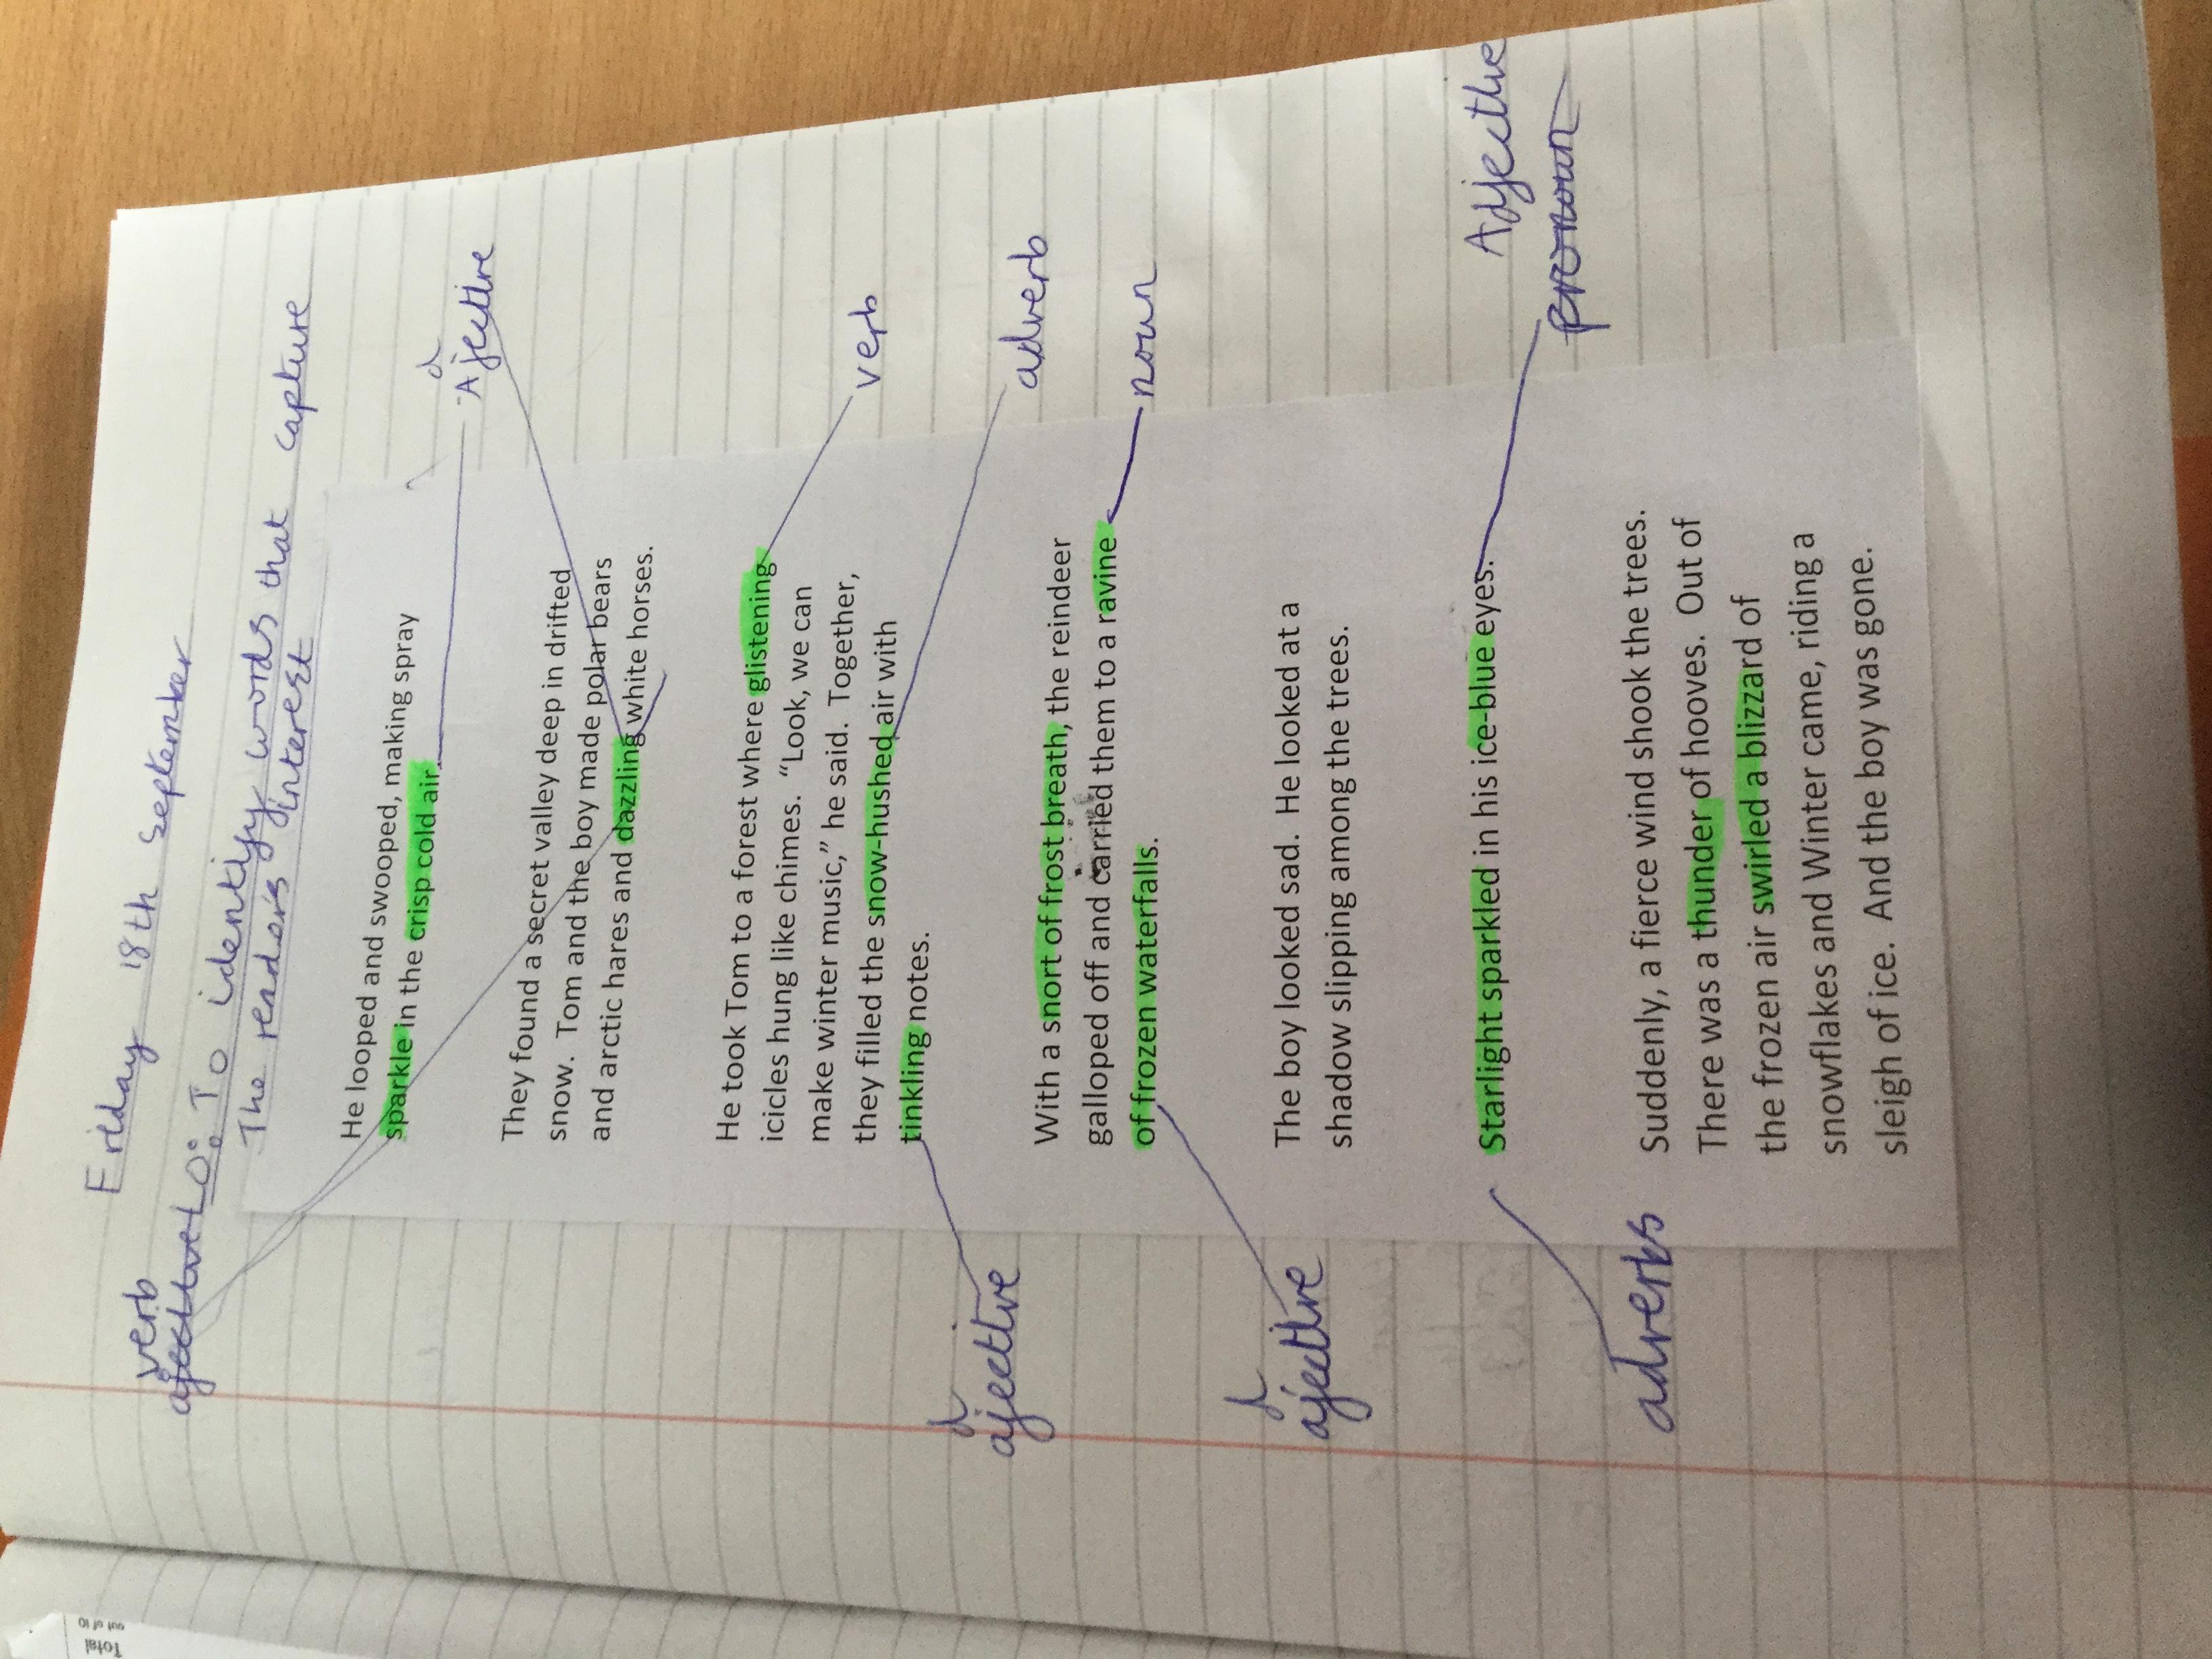 Friday 18th September
verb
ajective L.O: To identify words that capture
The reader's interest
He looped and swooped, making spray
sparkle in the crisp cold air.
d
Ajective
They found a secret valley deep in drifted
snow. Tom and the boy made polar bears
and arctic hares and dazzling white horses.
He took Tom to a forest where glistening
icicles hung like chimes. “Look, we can
make winter music,” he said. Together,
they filled the snow-hushed air with
tinkling notes.
verb
adverb
d
ajective
With a snort of frost breath, the reindeer
galloped off and carried them to a ravine
of frozen waterfalls.
noun
d
ajective
The boy looked sad. He looked at a
shadow slipping among the trees.
Starlight sparkled in his ice-blue eyes.
Adjective
pronoun
adverbs
Suddenly, a fierce wind shook the trees.
There was a thunder of hooves. Out of
the frozen air swirled a blizzard of
snowflakes and Winter came, riding a
sleigh of ice. And the boy was gone.
Total
out of 10